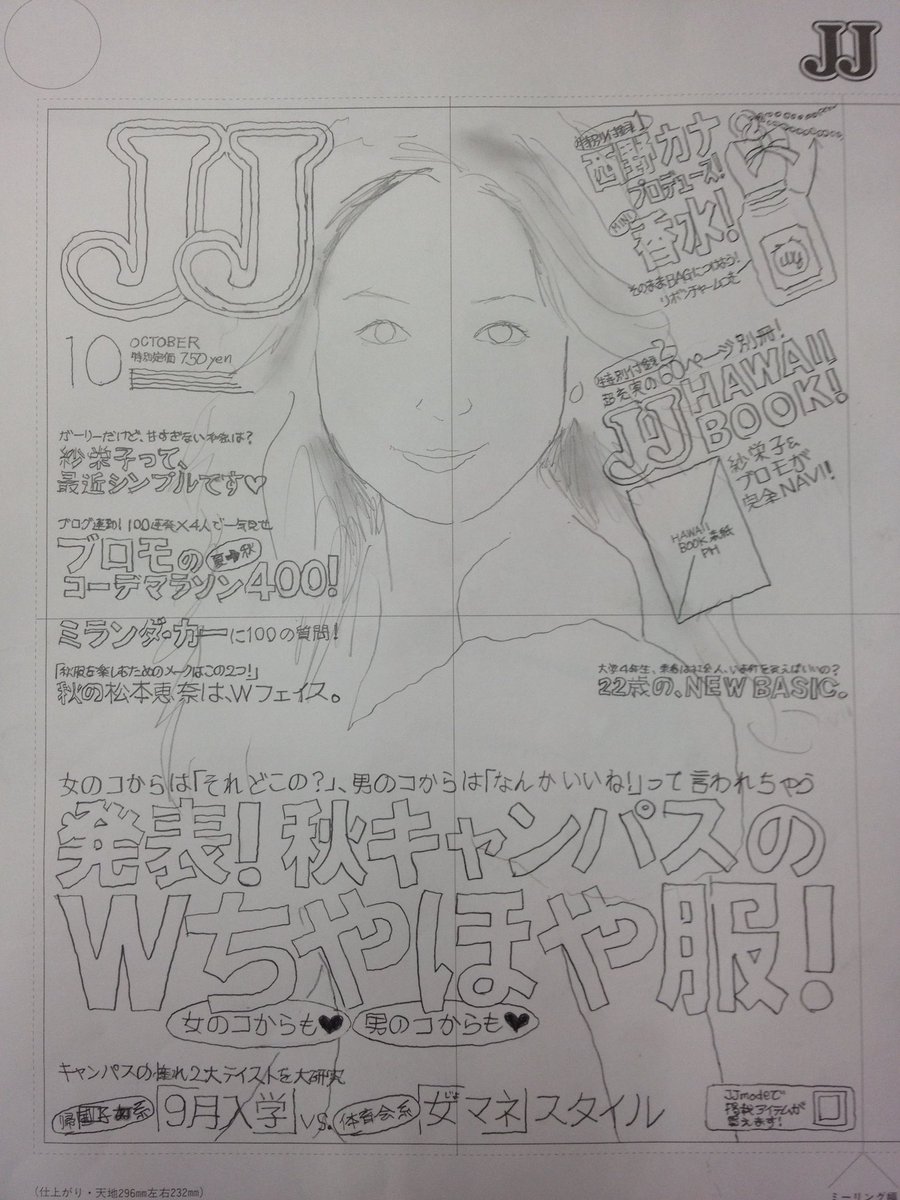 JJ
JJ
10
OCTOBER
特別定価 750yen
ガーリーだけど、甘すぎない私は?
紗栄子って、
最近シンプルです♡
ブログ連動!100連発×4人で一気見せ
ブロモの夏→秋
コーデマラソン400!
ミランダ・カーに100の質問!
「秋服を楽しむためのメークはこの2つ!」
秋の松本恵奈は、Wフェイス。
特別付録1
西野カナ
プロデュース!
MINI
香水!
そのままBAGにつけよう!
リボンチャームつき
jj
特別付録2
超充実の ページ別冊!
JJ HAWAII
BOOK!
紗栄子&
ブロモが
完全NAVI!
HAWAII
BOOK表紙
PH
大学4年生、来春は社会人、いま何を買えばいいの?
22歳の、NEW BASIC。
女のコからは「それどこの?」、男のコからは「なんかいいね!」って言われちゃう
発表!秋キャンパスの
Wちやほや服!
女のコからも♥
男のコからも♥
キャンパスの憧れ2大テイストを大研究
帰国子女系 9月入学 vs. 体育会系 女マネ スタイル
じょ
JJmodeで
掲載アイテムが
買えます!
(仕上がり・天地296mm左右232mm)
ミーリング幅